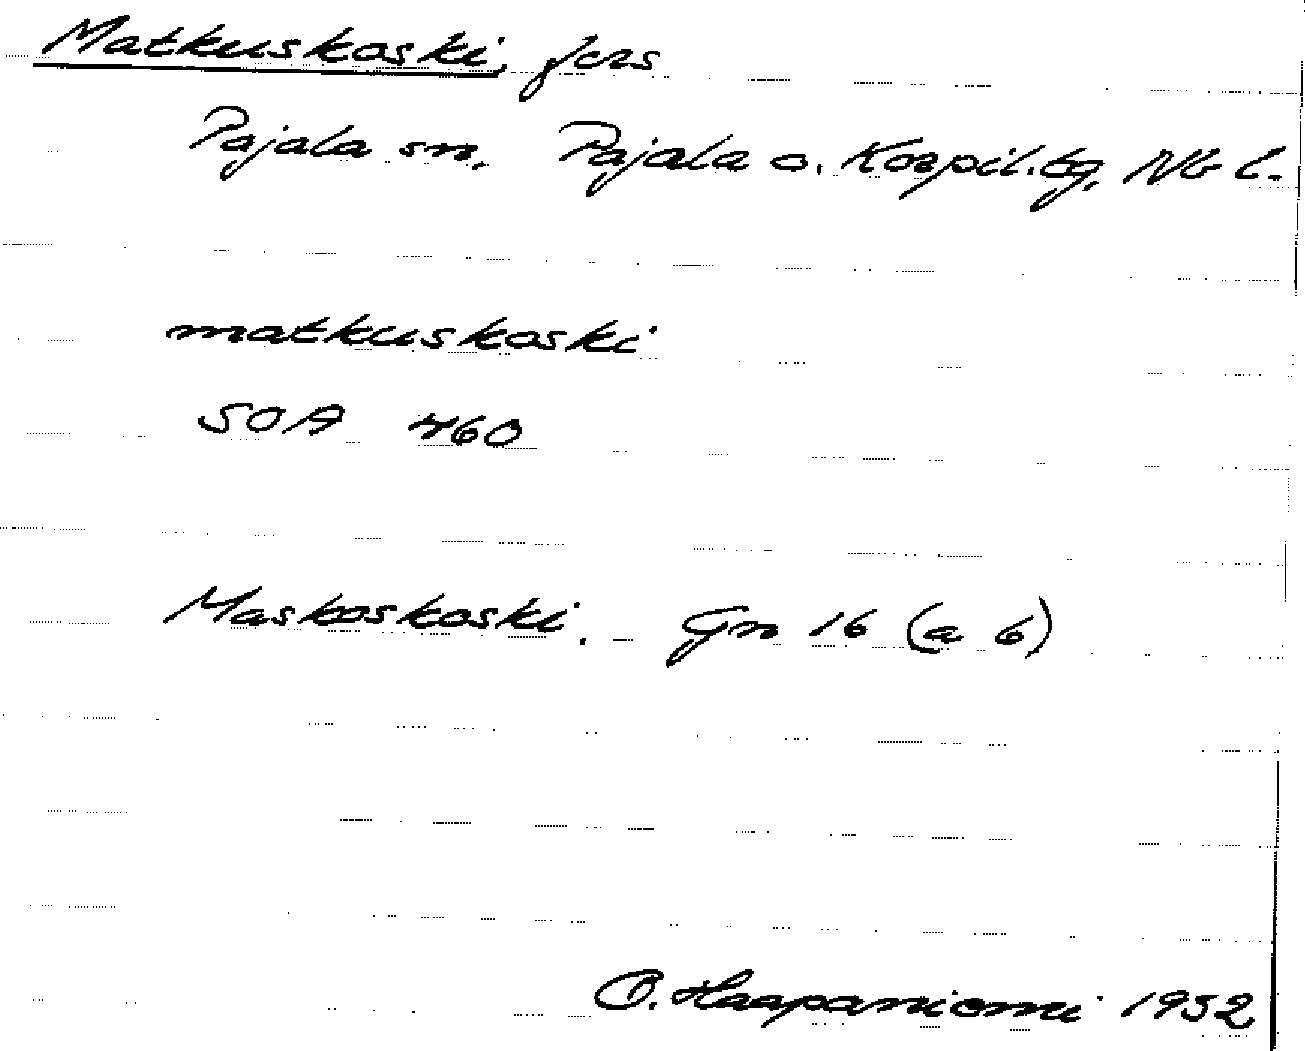 Matkuskoski, fors
Pajala sn. Pajala o. Korpil. tg, Nb l.
matkuskoski
SOA 460
Maskoskoski. - Gn 16 (a 6)
O. Haapaniemi 1952